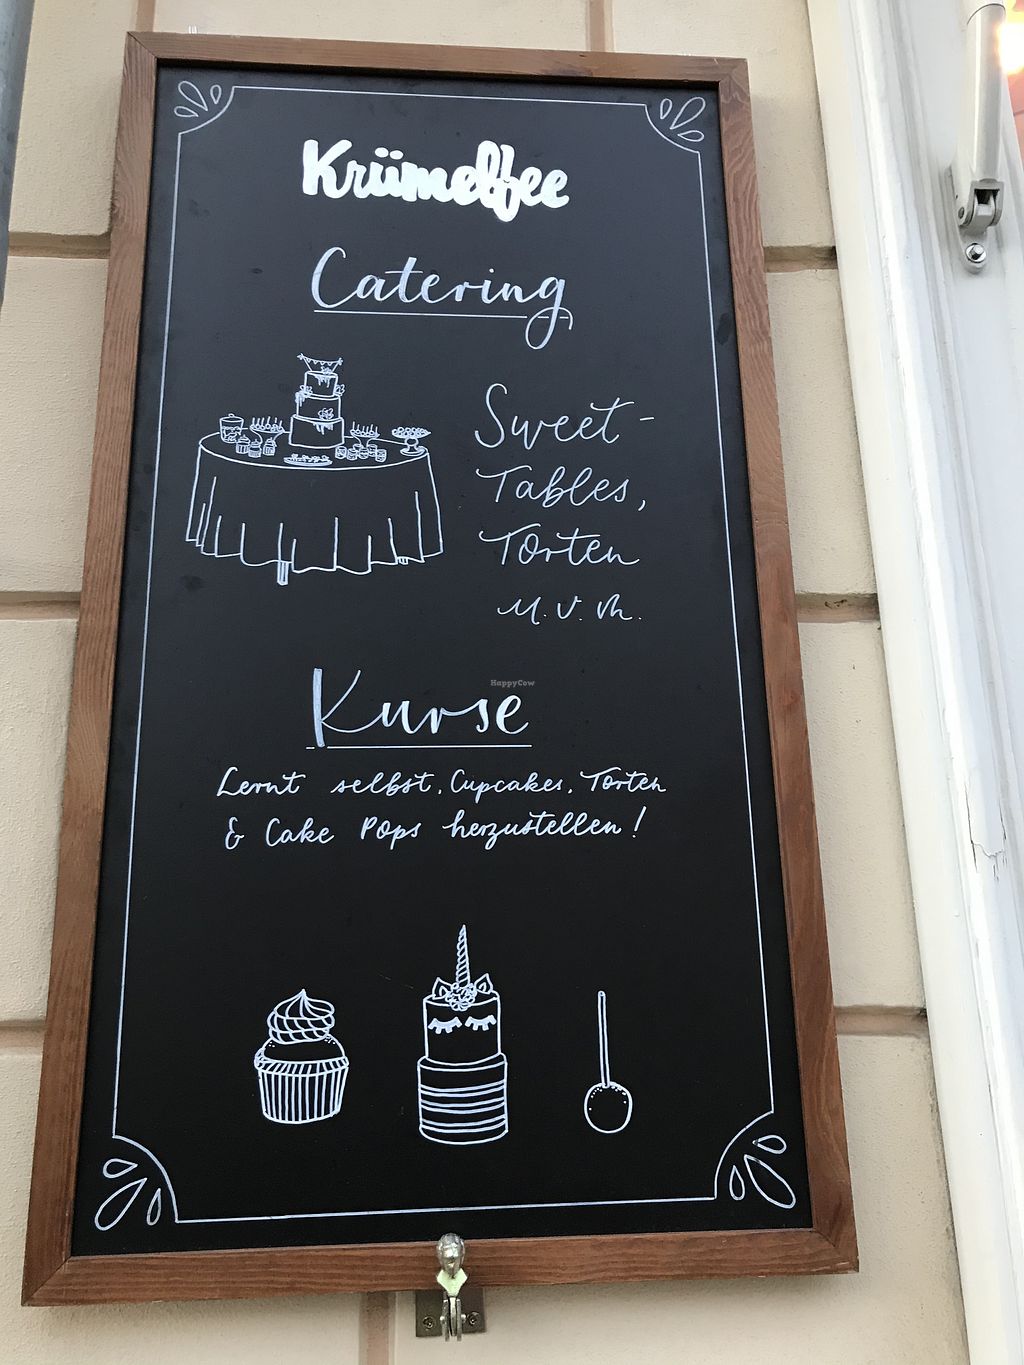 Krümelfee
Catering
Sweet-
Tables,
Torten
u.v.m.
Kurse
HappyCow
Lernt selbst, Cupcakes, Torten
& Cake Pops herzustellen!